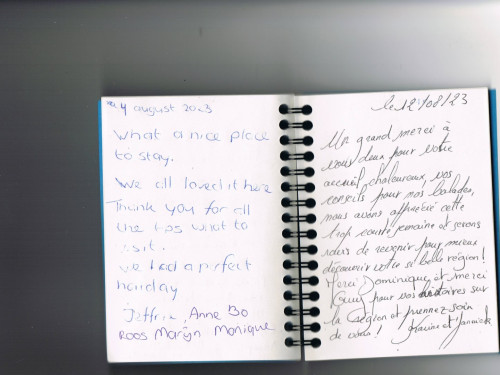 4 august 2023
What a nice place
to stay.
We all loved it here
Thank you for all
the tips what to
visit.
we had a perfect
holiday
Anne Bo
ROOS Marijn Monique
le 12/08/23
Un grand merci à
vous deux pour votre
accueil chaleureux, vos
conseils pour nos balades,
nous avons apprécié cette
trop courte semaine et serons
ravis de revenir pour mieux
découvrir votre si belle région!
Merci Dominique, et merci
Guy pour vos histoires sur
la région et prennez soin
de vous! Karine et Yannick